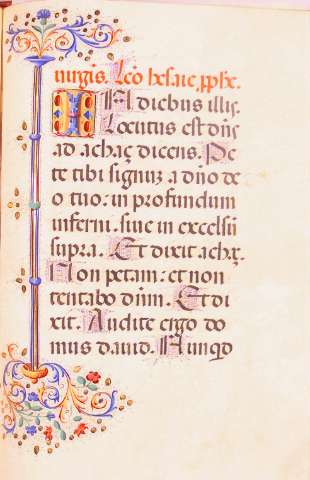 uirgis. Leo hesaie, pphe.
IN diebus illis
Locutus est dns
ad achaz dicens. Pe
te tibi signuz a dno de
o tuo: in profundum
inferni. siue in excelsu
supra. Et dixit achz.
Non petam: et non
tentabo dnm. Et di
xit. Audite ergo do
mus dauid. Nunqd